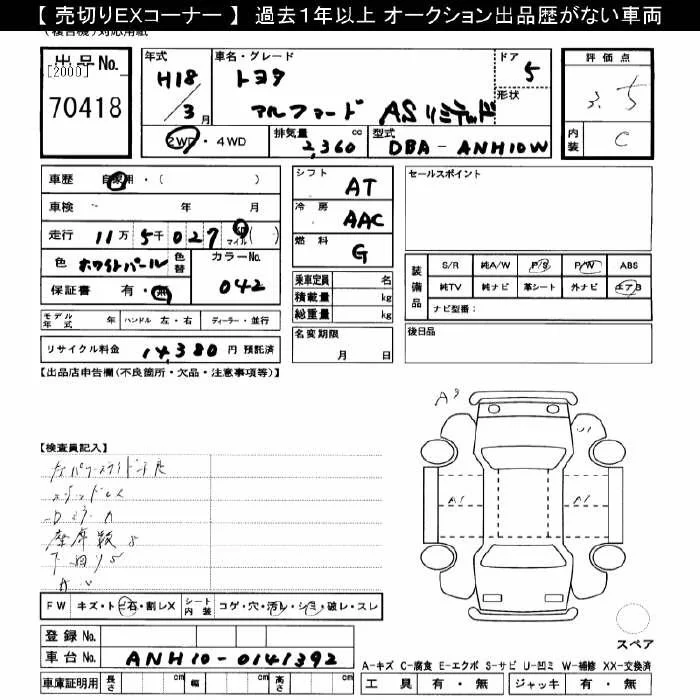 【 売切りEXコーナー 】 過去1年以上 オークション出品歴がない車両
(複合機)対応用紙
出品No.
[2000]
70418
年式 H18/3月
車名・グレード トヨタ アルファード AS リミテッド
ドア 5
形状
評価点 3.5
内装 C
2WD・4WD
排気量 2,360 cc
型式 DBA-ANH10W
車歴 自家用・( )
車検 年 月
走行 11万5千027 マイル( )
色 ホワイトパール 色替
カラーNo. 042
保証書 有・無
モデル年式 年 ハンドル 左・右 ディーラー・並行
リサイクル料金 14,380 円 預託済
シフト AT
冷房 AAC
燃料 G
乗車定員 名
積載量 kg
総重量 kg
名変期限 月 日
セールスポイント
装備品
S/R 純A/W P/S P/W ABS
純TV 純ナビ 革シート 外ナビ エアB
ナビ型番:
後日品
【出品店申告欄(不良箇所・欠品・注意事項等)】
【検査員記入】
A9
U1
A1 A1
FW キズ・トビ石・割レX シート内装 コゲ・穴・汚レ・シミ・破レ・スレ
登録No.
車台No. ANH10-0141392
車庫証明用 長さ cm 幅 cm 高さ cm
スペア
A-キズ C-腐食 E-エクボ S-サビ U-凹ミ W-補修 XX-交換済
工具 有・無 ジャッキ 有・無